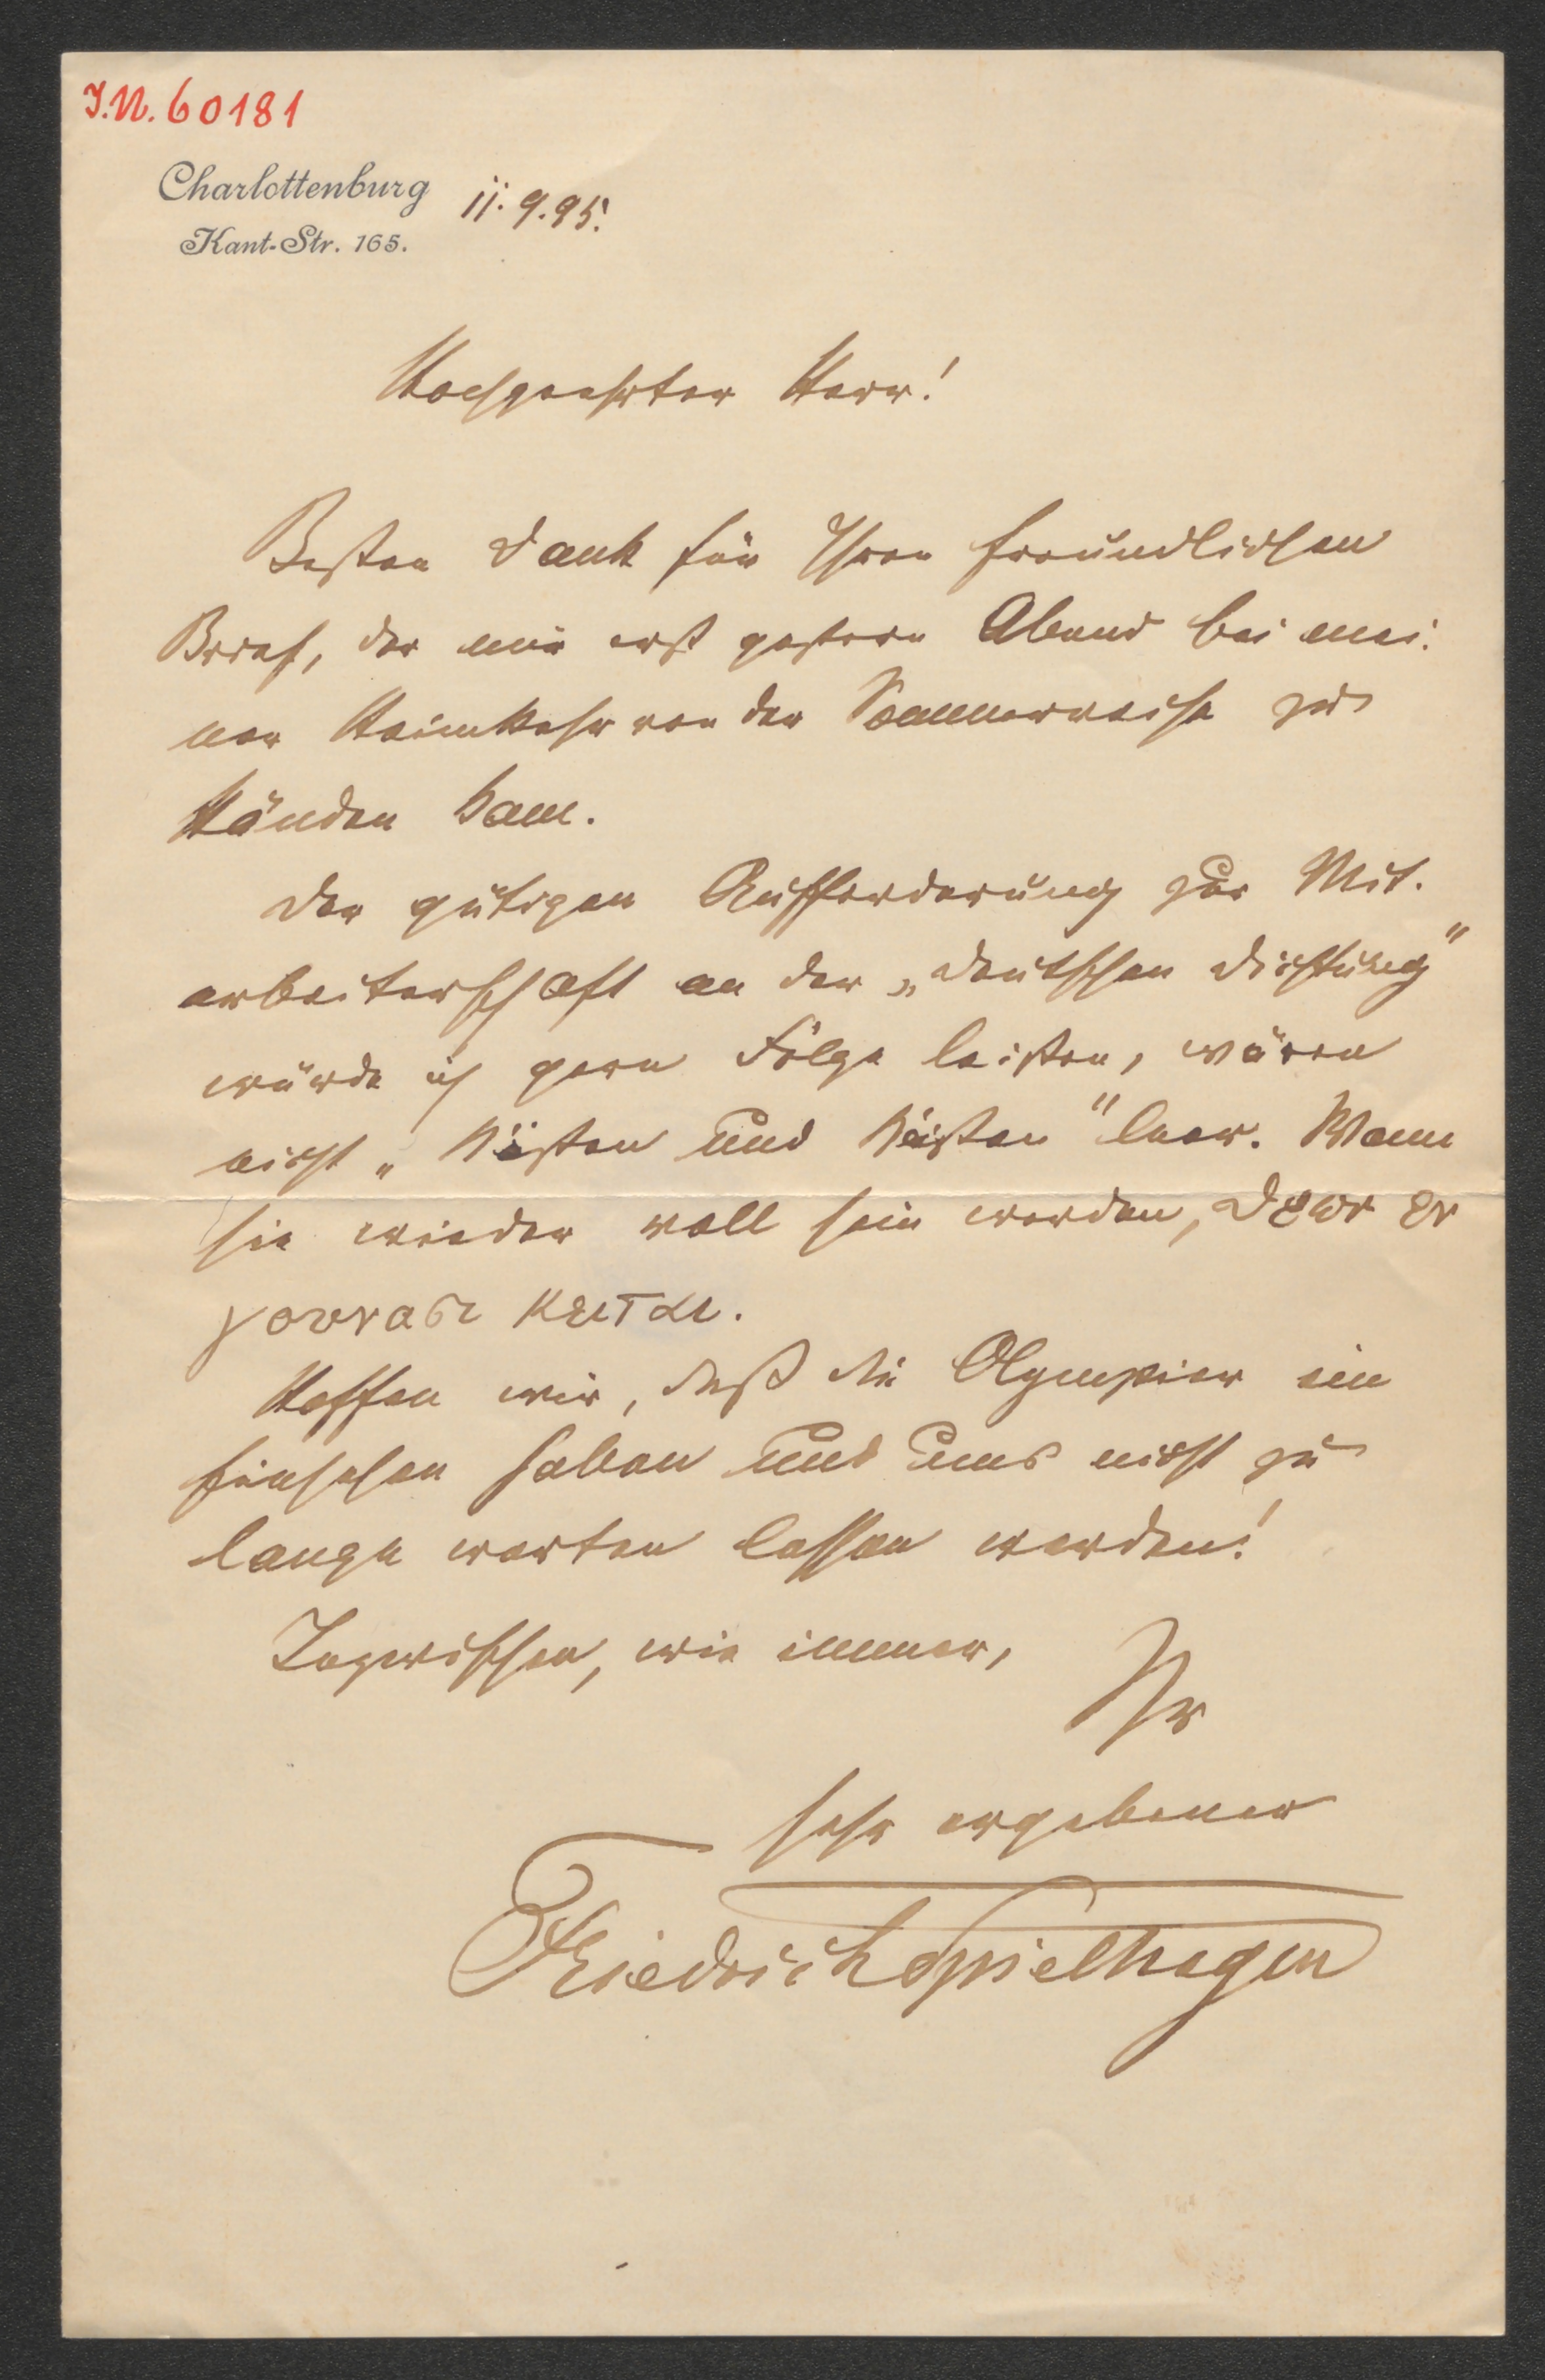 J.N. 60181
Charlottenburg 11.9.95.
Kant-Str. 165.
Hochgeehrter Herr!
Besten Dank für Ihren freundlichen
Brief, der mir erst gestern Abend bei mei-
ner Heimkehr von der Sommerreise zu
Händen kam.
Der gütigen Aufforderung zur Mit-
arbeiterschaft an der „Deutschen Dichtung"
würde ich gern Folge leisten, wären
nicht „Kisten und Kasten" leer. Wann
sie wieder voll sein werden, θεῶν ἐν
γούνασι κεῖται.
Hoffen wir, daß die Olympier ein
Einsehen haben und uns nicht zu
lange warten lassen werden!
Inzwischen, wie immer,
Ihr
sehr ergebener
Friedrich Spielhagen